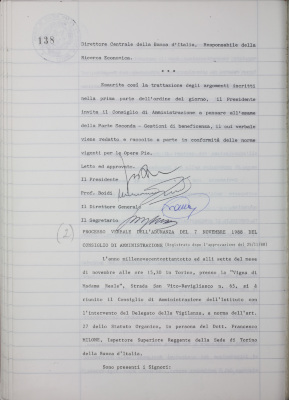 138
Direttore Centrale della Banca d'Italia, Responsabile della
Ricerca Economica.
* * *
Esaurita così la trattazione degli argomenti iscritti
nella prima parte dell'ordine del giorno, il Presidente
invita il Consiglio di Amministrazione a passare all'esame
della Parte Seconda - Gestioni di beneficenza, il cui verbale
viene redatto e raccolto a parte in conformità delle norme
vigenti per le Opere Pie.
Letto ed approvato.
Il Presidente
Prof. Guidi
Il Direttore Generale
Il Segretario
(2)
PROCESSO VERBALE DELL'ADUNANZA DEL 7 NOVEMBRE 1988 DEL
CONSIGLIO DI AMMINISTRAZIONE
L'anno millenovecentottantotto ed alli sette del mese
di novembre alle ore 15,30 in Torino, presso la "Vigna di
Madama Reale", Strada San Vito-Revigliasco n. 65, si è
riunito il Consiglio di Amministrazione dell'Istituto con
l'intervento del Delegato della Vigilanza, a norma dell'art.
17 dello Statuto Organico, in persona del Dott. Francesco
MILONE, Ispettore Superiore Reggente della Sede di Torino
della Banca d'Italia.
Sono presenti i Signori: